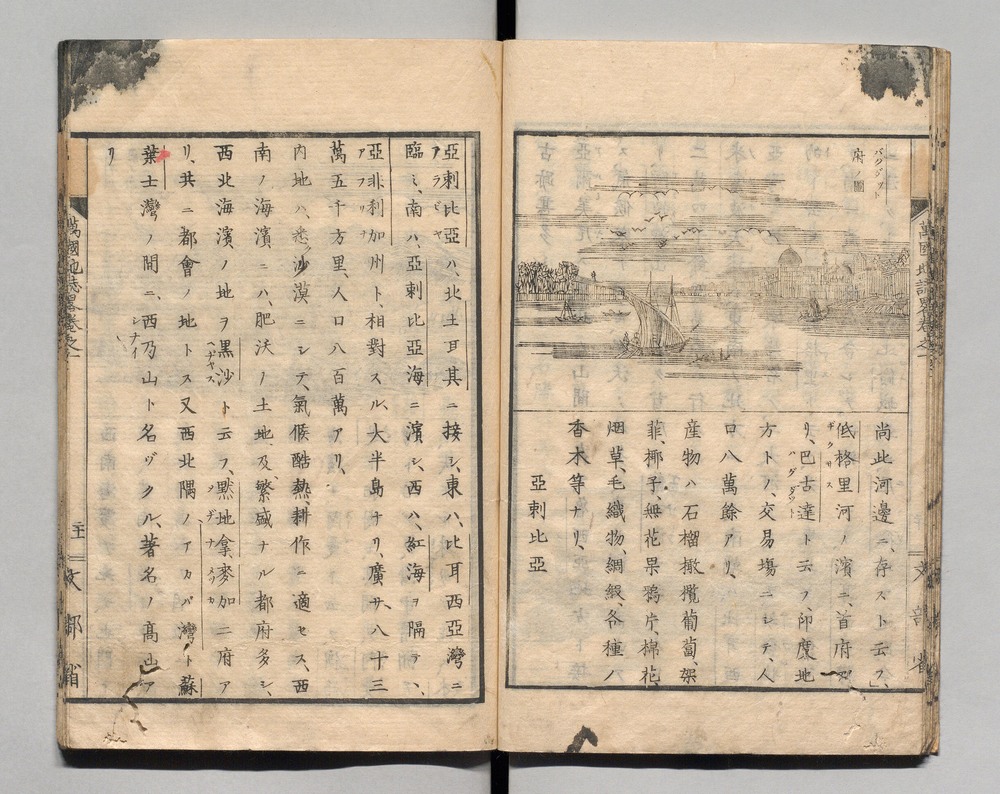 バクダット
府ノ圖
尚此河邊ニ、存スト云フ、
低格里河ノ濱ニ、首府ア
リ、巴古達ト云フ、印度地
方トノ、交易場ニシテ、人
口八萬餘アリ、
産物ハ石榴橄欖葡萄、架
菲、椰子、無花果鴉片、棉花、
烟草、毛織物、綢緞、各種ハ
香木等ナリ、
亞剌比亞
亞剌比亞ハ、北土耳其ニ接シ、東ハ、比耳西亞灣ニ
臨ミ、南ハ、亞剌比亞海ニ濱シ、西ハ、紅海ヲ隔テ、
亞非利加州ト、相對スル、大半島ナリ、廣サ、八十三
萬五千方里、人口八百萬アリ、
内地ハ、悉ク沙漠ニシテ、氣候酷熱、耕作ニ適セス、西
南ノ海濱ニハ、肥沃ノ土地、及繁盛ナル都府多シ、
西北海濱ノ地ヲ黒沙ト云フ、默地拿麥加二府ア
リ、共ニ都會ノ地トス又西北隅ノアカバ灣ト蘇
葉士灣ノ間ニ、西乃山ト名ヅクル、著名ノ高山ア
リ
萬國地誌畧卷之一
文部省